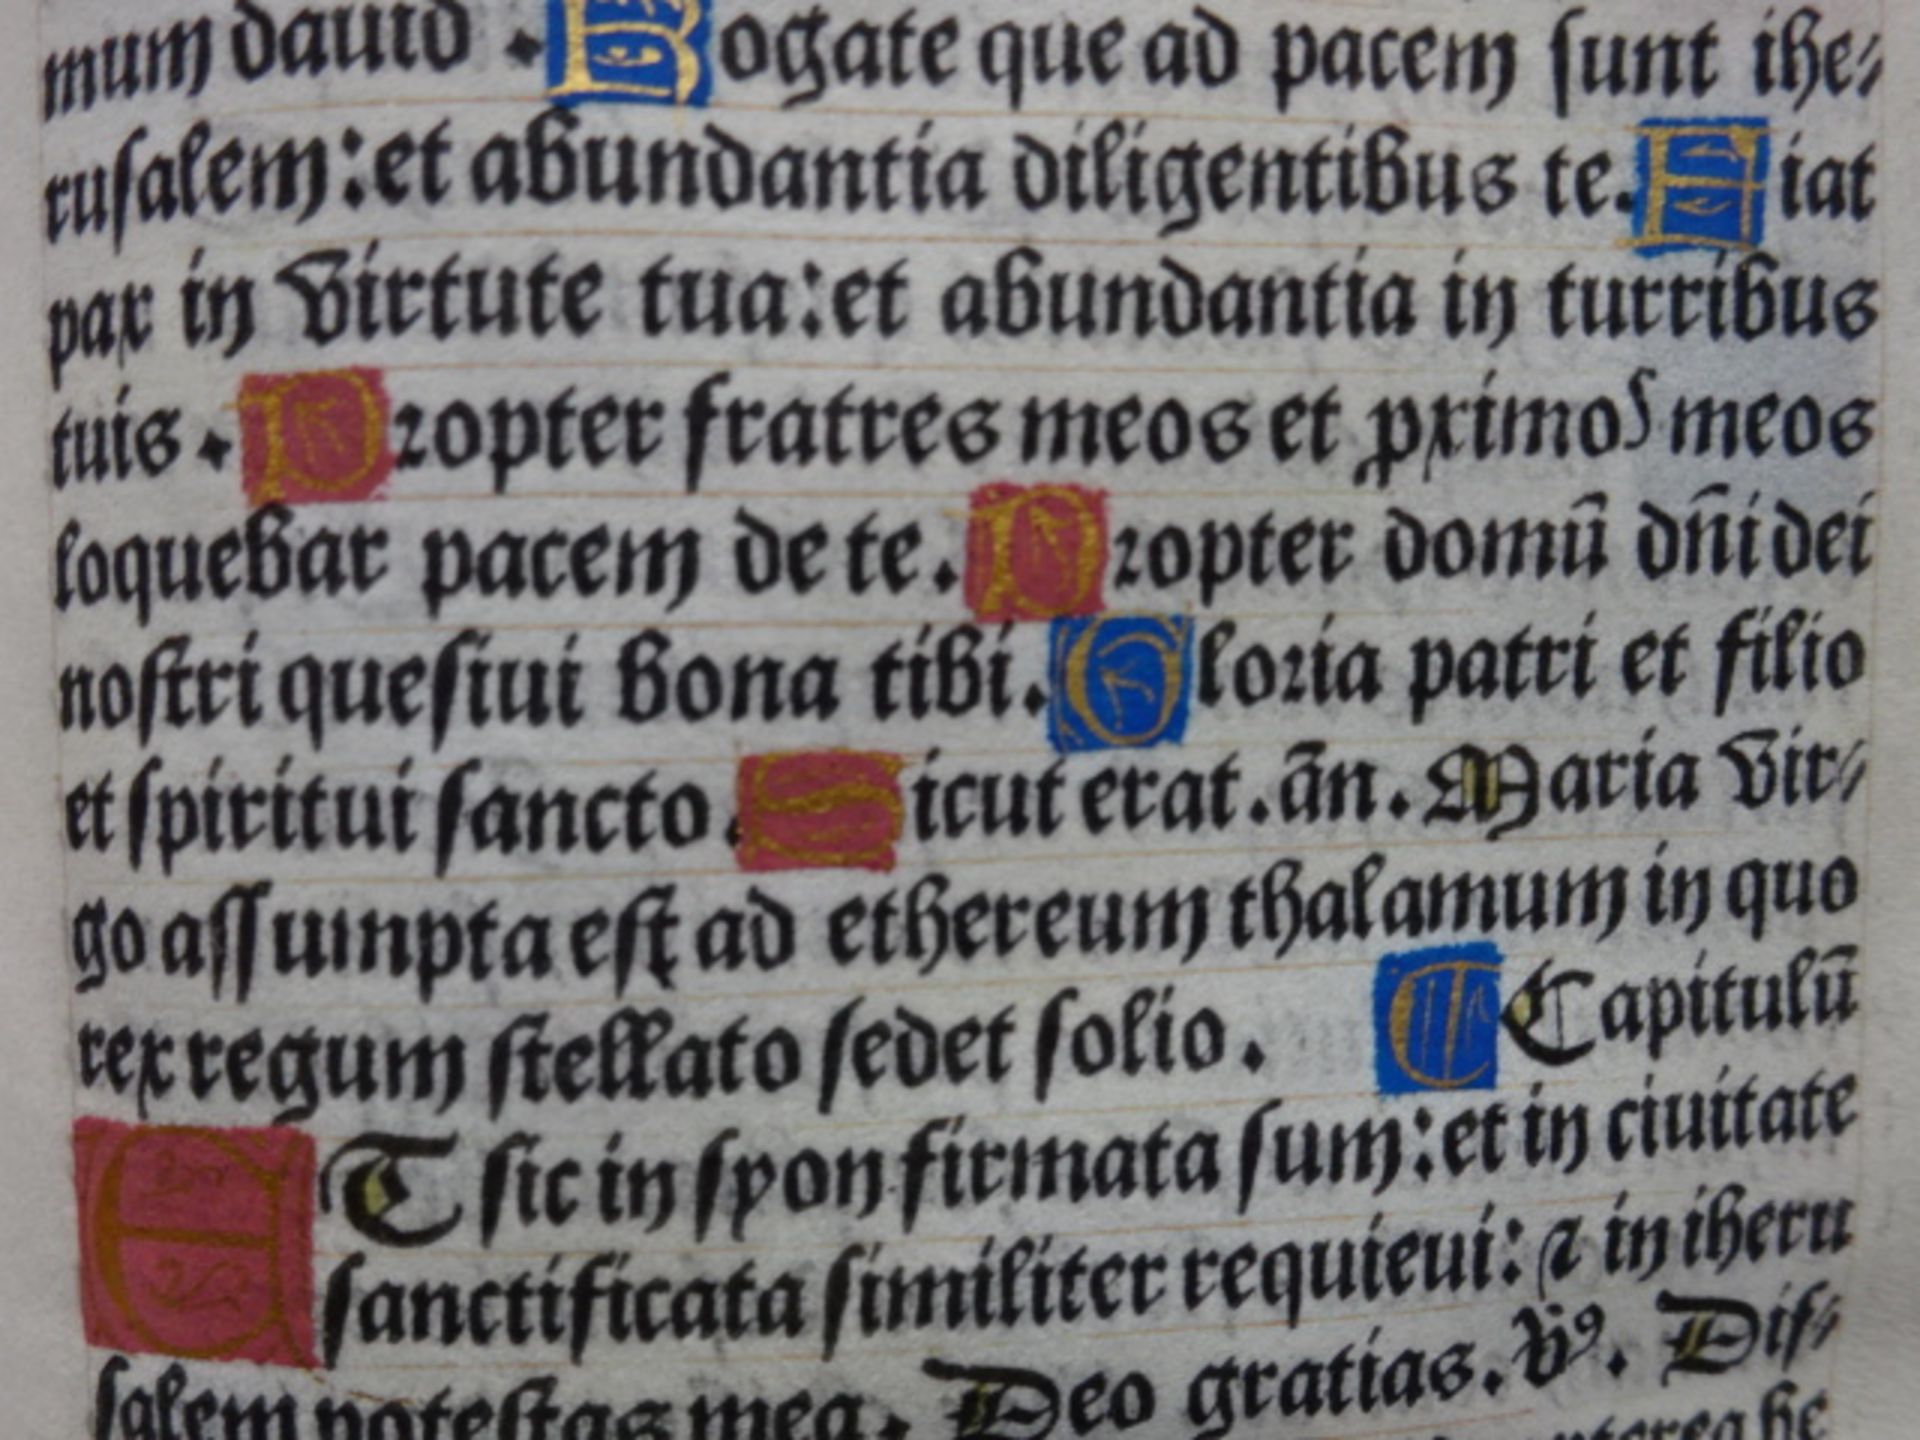 mum dauid . Rogate que ad pacem sunt ihe⸗
rusalem: et abundantia diligentibus te. Fiat
pax in virtute tua: et abundantia in turribus
tuis . Propter fratres meos et ꝓximos meos
loquebar pacem de te. Propter domū dn̄i dei
nostri quesiui bona tibi. Gloria patri et filio
et spiritui sancto. Sicut erat. ān. Maria vir⸗
go assumpta est ad ethereum thalamum in quo
rex regum stellato sedet solio. C Capitulū
ET sic in syon firmata sum: et in ciuitate
sanctificata similiter requieui: ⁊ in iheru
salem potestas mea. Deo gratias. v̄ꝰ. Dif⸗